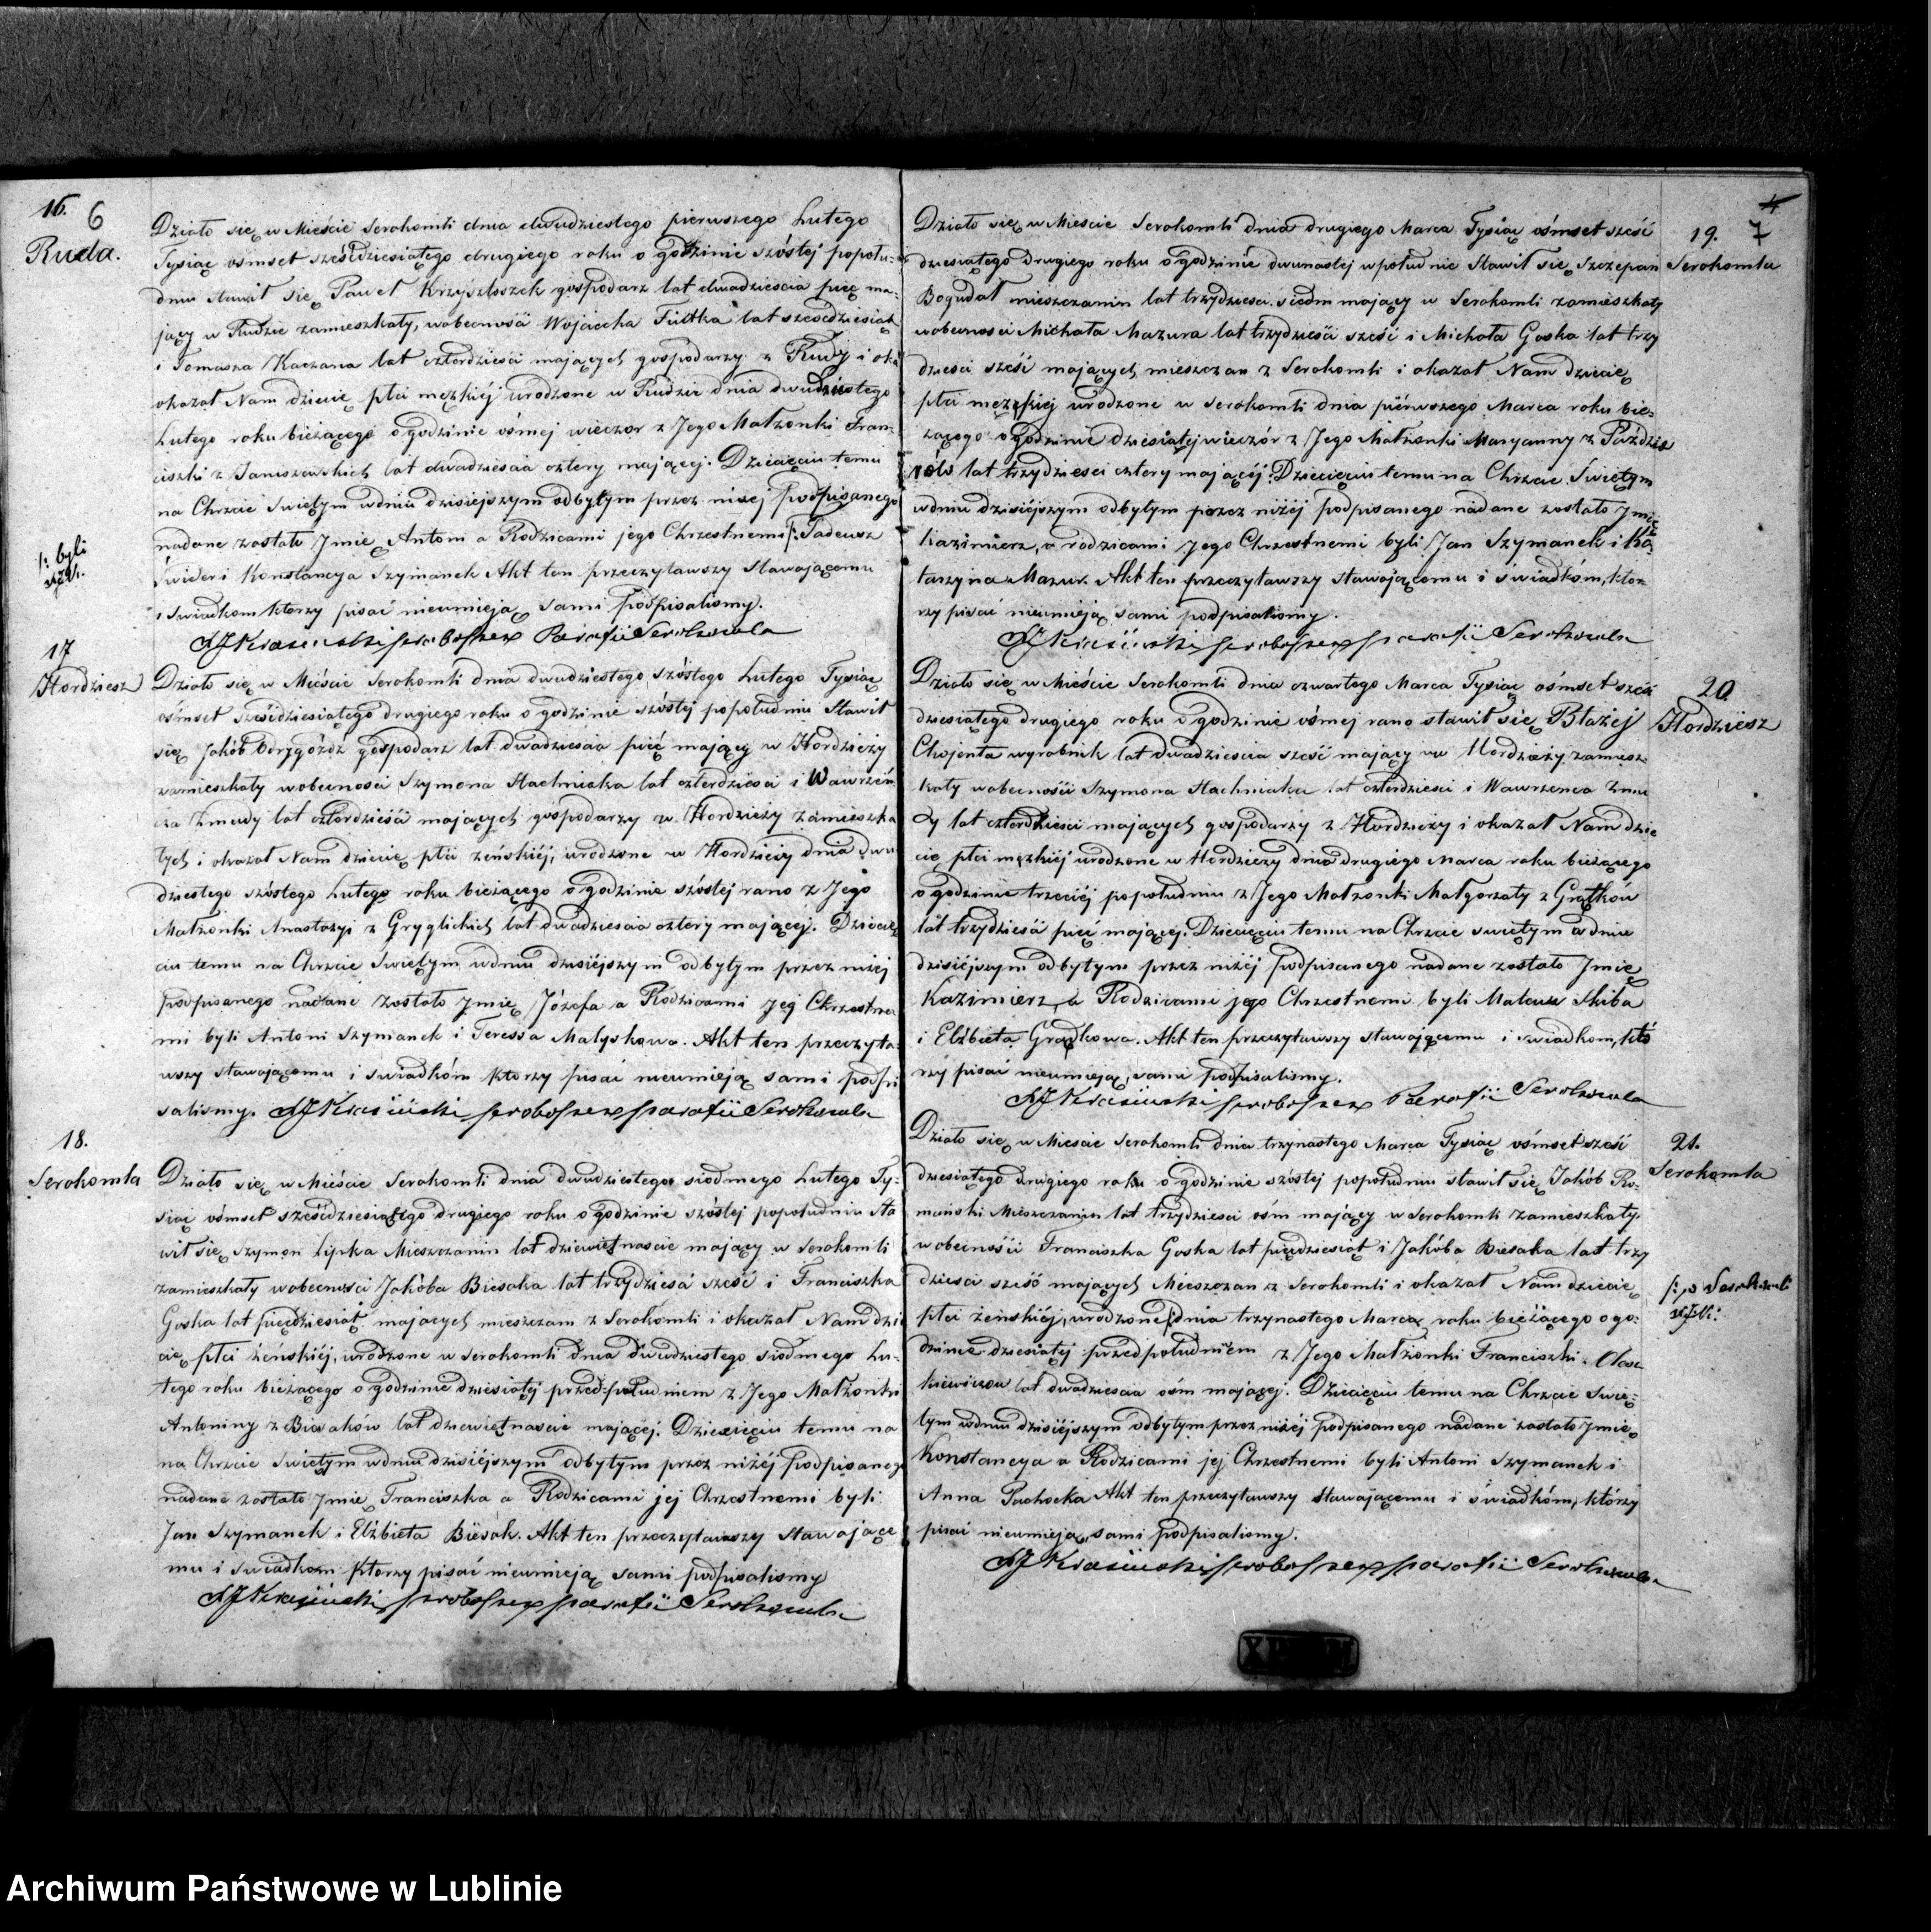 16. 6
Ruda.
Działo się w Mieście Serokomli dnia dwudziestego pierwszego Lutego
Tysiąc ośmset sześćdziesiątego drugiego roku o godzinie szóstej popołu-
dniu stawił się Paweł gospodarz lat dwadzieścia pięć ma-
jący w Rudzie zamieszkały, wobecności Wojciecha Fiutka lat sześćdziesiąt
i Tomasza Kaczana lat czterdzieści mających gospodarzy z Rudy i oka
okazał Nam dziecię płci męzkiéj urodzone w Rudzie dnia dwudziestego
Lutego roku bieżącego o godzinie ósmej wieczor z Jego Małżonki Fran-
ciszki z Janiszewskich lat dwadzieścia cztery mającej. Dziecięciu temu
na Chrzcie Swiętym wdniu dzisiejszym odbytym przez niżej podpisanego
nadane zostało Jmie Antoni a Rodzicami jego Chrzestnemi /: Tadeusz
/: byli
Świder i Konstancya Szymanek Akt ten przeczytawszy Stawającemu
i Swiadkom ktorzy pisać nieumieją sami podpisalismy.
proboszcz Parafii Serokomla
17
Hordziesz
Działo się w Mieście Serokomli dnia dwudziestego szóstego Lutego Tysiąc
ośmset sześćdziesiątego drugiego roku o godzinie szóstej popołudniu Stawił
się Jakób Odrzygóźdź gospodarz lat dwadzieścia pięć mający w Hordzieży
zamieszkały wobecnosci Szymona Stachniaka lat czterdziesci i Wawrzeń
ca Zmudy lat czterdzieści mających gospodarzy w Hordzieży zamieszka
łych i okazał Nam dziecię płci żeńskiéj, urodzone w Hordzieży dnia dwu
dziestego szóstego Lutego roku bieżącego o godzinie szóstej rano z Jego
Małżonki Anastazyi z Gryglickich lat dwadzieścia cztery mającej. Dziecię
ciu temu na Chrzcie Swiętym wdniu dzisiéjszym odbytym przez niżéj
podpisanego nadane zostało Jmię Józefa a Rodzicami Jej Chrzestne
mi byli Antoni Szymanek i Teressa Małyskowa. Akt ten przeczyta
wszy stawającemu i swiadkóm ktorzy pisać nieumieją sami podpi
salismy. proboszcz parafii Serokomla
18.
Serokomla
Działo się w Mieście Serokomli dnia dwudziestego siódmego Lutego Ty-
siąc ośmset sześćdziesiątego drugiego roku o godzinie szóstej popołudniu Sta
wił się Szymon Lipka Mieszczanin lat dziewiętnaście mający w Serokomli
zamieszkały wobecności Jakóba Biesaka lat trzydzieści sześć i Franciszka
Goska lat pięćdziesiąt mających mieszczan z Serokomli i okazał Nam dzie
cię płci żeńskiéj, urodzone w Serokomli dnia dwudziestego siódmego Lu-
tego roku bieżącego o godzinie dziesiątej przed=południem z Jego Małżonki
Antoniny z Biesaków lat dziewiętnaście mającéj. Dziecięciu temu na
na Chrzcie Swiętym wdniu dzisiéjszym odbytym przez niżéj podpisanego
nadane zostało Jmie Franciszka a Rodzicami jéj Chrzestnemi byli
Jan Szymanek i Elżbieta Biesak. Akt ten przeczytawszy Stawające
mu i Swiadkom ktorzy pisać nieumieją sami podpisalismy
proboszcz parafii Serokomla
4
19. 7
Serokomla
Działo się w Mieście Serokomli dnia drugiego Marca Tysiąc ośmset sześć
dziesiątego drugiego roku o godzinie dwunastéj wpołudnie Stawił się Szczepan
Bogudał mieszczanin lat trzydzieści siedm mający w Serokomli zamieszkały
wobecności Michała Mazura lat trzydzieści sześć i Michała Goska lat trzy
dziesci sześć mających mieszczan z Serokomli i okazał Nam dziecię
płci męzkiej urodzone w Serokomli dnia piérwszego Marca roku bie-
żącego o godzinie dziesiątéj wieczór z Jego Małżonki Maryanny z Paździo
rów lat trzydziesci cztery mającéj. Dziecięciu temu na Chrzcie Swiętym
wdniu dzisiéjszym odbytym przez niżéj podpisanego nadane zostało Jmię
Kazimierz, a rodzicami Jego Chrzestnemi byli Jan Szymanek i Ka-
tarzyna Mazur. Akt ten przeczytawszy stawającemu i świadkóm, kto-
rzy pisać nieumieją sami podpisalismy.
proboszcz parafii Serokomla
20
Hordziesz
Działo się w Mieście Serokomli dnia czwartego Marca Tysiąc ośmset sześć
dziesiątego drugiego roku o godzinie ósmej rano stawił się Błażéj
Chojenta wyrobnik lat dwadzieścia sześć mający w Hordzieży zamiesz-
kały wobecności Szymona Stachniaka lat czterdziesci i Wawrzenca Zmu
dy lat czterdzieści mających gospodarzy z Hordzieży i okazał Nam dzie
cię płci męzkiéj urodzone w Hordzieży dnia drugiego Marca roku bieżącego
o godzinie trzeciéj popołudniu z Jego Małżonki Małgorzaty z Grątków
lat trzydzieści pięć mającej. Dziecięciu temu na Chrzcie swiętym wdniu
dzisiéjszym odbytym przez niżéj podpisanego nadane zostało Jmię
Kazimierz, a Rodzicami jego Chrzestnemi byli Mateusz Skiba
i Elżbieta Grądkowa. Akt ten przeczytawszy stawającemu i swiadkom, któ
rzy pisać nieumieją, sami podpisalismy.
proboszcz Parafii Serokomla
21.
Serokomla
Działo się w Mieście Serokomli dnia trzynastego Marca Tysiąc ośmset sześć
dziesiątego drugiego roku o godzinie szóstéj popołudniu stawił się Jakób Ro-
mański Mieszczanin lat trzydzieści ośm mający w Serokomli zamieszkały.
wobecności Franciszka Goska lat pięćdziesiąt i Jakóba Biesaka lat trzy
dziesci sześć mających Mieszczan z Serokomli i okazał Nam dziecię
/: w Serokomli
płci żeńskiéj, urodzone /: dnia trzynastego Marca roku bieżącego o go-
dzinie dziesiątej przedpołudniem z Jego Małżonki Franciszki
lat dwadzieścia ośm mającéj. Dziecięciu temu na Chrzcie Swię-
tym wdniu dzisiéjszym odbytym przez niżéj podpisanego nadane zostało Jmie
Konstancya a Rodzicami jéj Chrzestnemi byli Antoni Szymanek i
Anna Pachocka Akt ten przeczytawszy Stawającemu i świadkóm, którzy
pisać nieumieją, sami podpisalismy.
proboszcz parafii Serokomla
Archiwum Państwowe w Lublinie